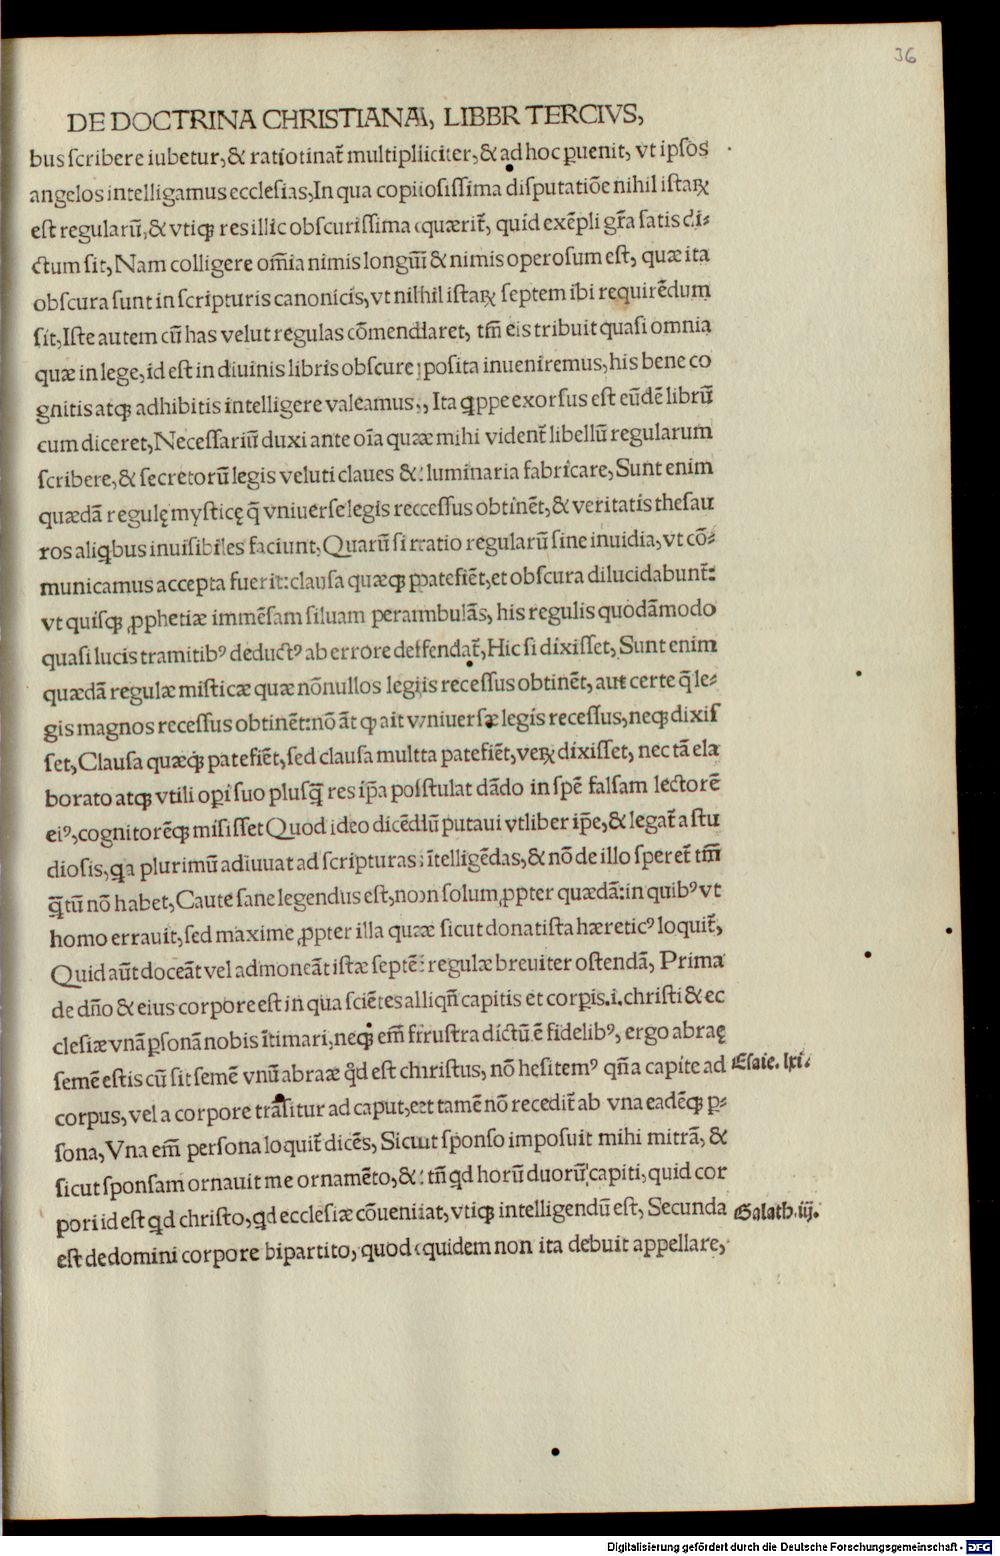 36
DE DOCTRINA CHRISTIANA, LIBER TERCIVS,
bus scribere iubetur, & ratiotinat̃ multipliciter, & ad hoc ꝑuenit, vt ipsos
angelos intelligamus ecclesias, In qua copiosissima disputatiõe nihil istaꝝ
est regularũ, & vtiqꝫ res illic obscurissima quærit̃, quid exẽpli gr̃a satis di-
ctum sit, Nam colligere om̃ia nimis longũ & nimis operosum est, quæ ita
obscura sunt in scripturis canonicis, vt nihil istaꝝ septem ibi requirẽdum
sit, Iste autem cũ has velut regulas cõmendaret, tm̃ eis tribuit quasi omnia
quæ in lege, id est in diuinis libris obscure posita inueniremus, his bene co
gnitis atqꝫ adhibitis intelligere valeamus,, Ita q̃ppe exorsus est eũdẽ librũ
cum diceret, Necessariũ duxi ante oĩa quæ mihi vident̃ libellũ regularum
scribere, & secretorũ legis veluti claues & luminaria fabricare, Sunt enim
quædã regulę mysticę q̃ vniuerse legis reccessus obtinẽt, & veritatis thesau
ros aliqbus inuisibiles faciunt, Quarũ si ratio regularũ sine inuidia, vt cõ-
municamus accepta fuerit: clausa quæqꝫ patefiẽt, et obscura dilucidabunt̃:
vt quisqꝫ ꝓphetiæ immẽsam siluam perambulãs, his regulis quodãmodo
quasi lucis tramitibꝰ deductꝰ ab errore deffendat̃, Hic si dixisset, Sunt enim
quædã regulæ misticæ quæ nõnullos legis recessus obtinẽt, aut certe q̃ le-
gis magnos recessus obtinẽt: nõ ãt qͥ ait vniuersæ legis recessus, neqꝫ dixis
set, Clausa quæqꝫ patefiẽt, sed clausa multta patefiẽt, veꝝ dixisset, nec tã ela
borato atqꝫ vtili oꝑi suo plusq̃ res ip̃a postulat dãdo in spẽ falsam lectorẽ
eiꝰ, cognitorẽqꝫ misisset Quod ideo dicẽdũ putaui vt liber ip̃e, & legat̃ a stu
diosis, qa plurimũ adiuuat ad scripturas ĩtelligẽdas, & nõ de illo speret̃ tm̃
q̃tũ nõ habet, Caute sane legendus est, non solum ꝓpter quædã: in quibꝰ vt
homo errauit, sed maxime ꝓpter illa quæ sicut donatista hæreticꝰ loquit̃,
Quid aũt doceãt vel admoneãt istæ septẽ regulæ breuiter ostendã, Prima
de dño & eius corpore est in qua sciẽtes aliqñ capitis et corꝑis .i. christi & ec
clesiæ vnã ꝑsonã nobis ĩtimari, neqꝫ em̃ frustra dictũ ẽ fidelibꝰ, ergo abraę
semẽ estis cũ sit semẽ vnũ abraæ qd est christus, nõ hesitemꝰ qñ a capite ad
Esaie. lxi.
corpus, vel a corpore trãsitur ad caput, et tamẽ nõ recedit̃ ab vna eadẽqꝫ ꝑ-
sona, Vna em̃ persona loquit̃ dicẽs, Sicut sponso imposuit mihi mitrã, &
sicut sponsam ornauit me ornamẽto, & tñ qd horũ duorũ capiti, quid cor
pori id est qd christo, qd ecclesiæ cõueniat, vtiqꝫ intelligendũ est, Secunda
Galath. iij.
est de domini corpore bipartito, quod quidem non ita debuit appellare,
Digitalisierung gefördert durch die Deutsche Forschungsgemeinschaft - DFG